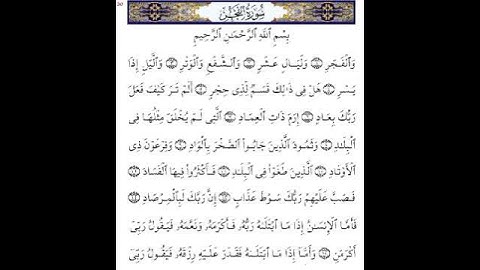 30
سُورَةُ الْفَجْرِ
بِسْمِ اللَّهِ الرَّحْمَٰنِ الرَّحِيمِ
وَالْفَجْرِ ۝ وَلَيَالٍ عَشْرٍ ۝ وَالشَّفْعِ وَالْوَتْرِ ۝ وَاللَّيْلِ إِذَا
يَسْرِ ۝ هَلْ فِي ذَٰلِكَ قَسَمٌ لِّذِي حِجْرٍ ۝ أَلَمْ تَرَ كَيْفَ فَعَلَ
رَبُّكَ بِعَادٍ ۝ إِرَمَ ذَاتِ الْعِمَادِ ۝ الَّتِي لَمْ يُخْلَقْ مِثْلُهَا فِي
الْبِلَٰدِ ۝ وَثَمُودَ الَّذِينَ جَابُوا الصَّخْرَ بِالْوَادِ ۝ وَفِرْعَوْنَ ذِي
الْأَوْتَادِ ۝ الَّذِينَ طَغَوْا فِي الْبِلَٰدِ ۝ فَأَكْثَرُوا فِيهَا الْفَسَادَ ۝
فَصَبَّ عَلَيْهِمْ رَبُّكَ سَوْطَ عَذَابٍ ۝ إِنَّ رَبَّكَ لَبِالْمِرْصَادِ ۝
فَأَمَّا الْإِنسَٰنُ إِذَا مَا ابْتَلَىٰهُ رَبُّهُ فَأَكْرَمَهُ وَنَعَّمَهُ فَيَقُولُ رَبِّي
أَكْرَمَنِ ۝ وَأَمَّا إِذَا مَا ابْتَلَىٰهُ فَقَدَرَ عَلَيْهِ رِزْقَهُ فَيَقُولُ رَبِّي